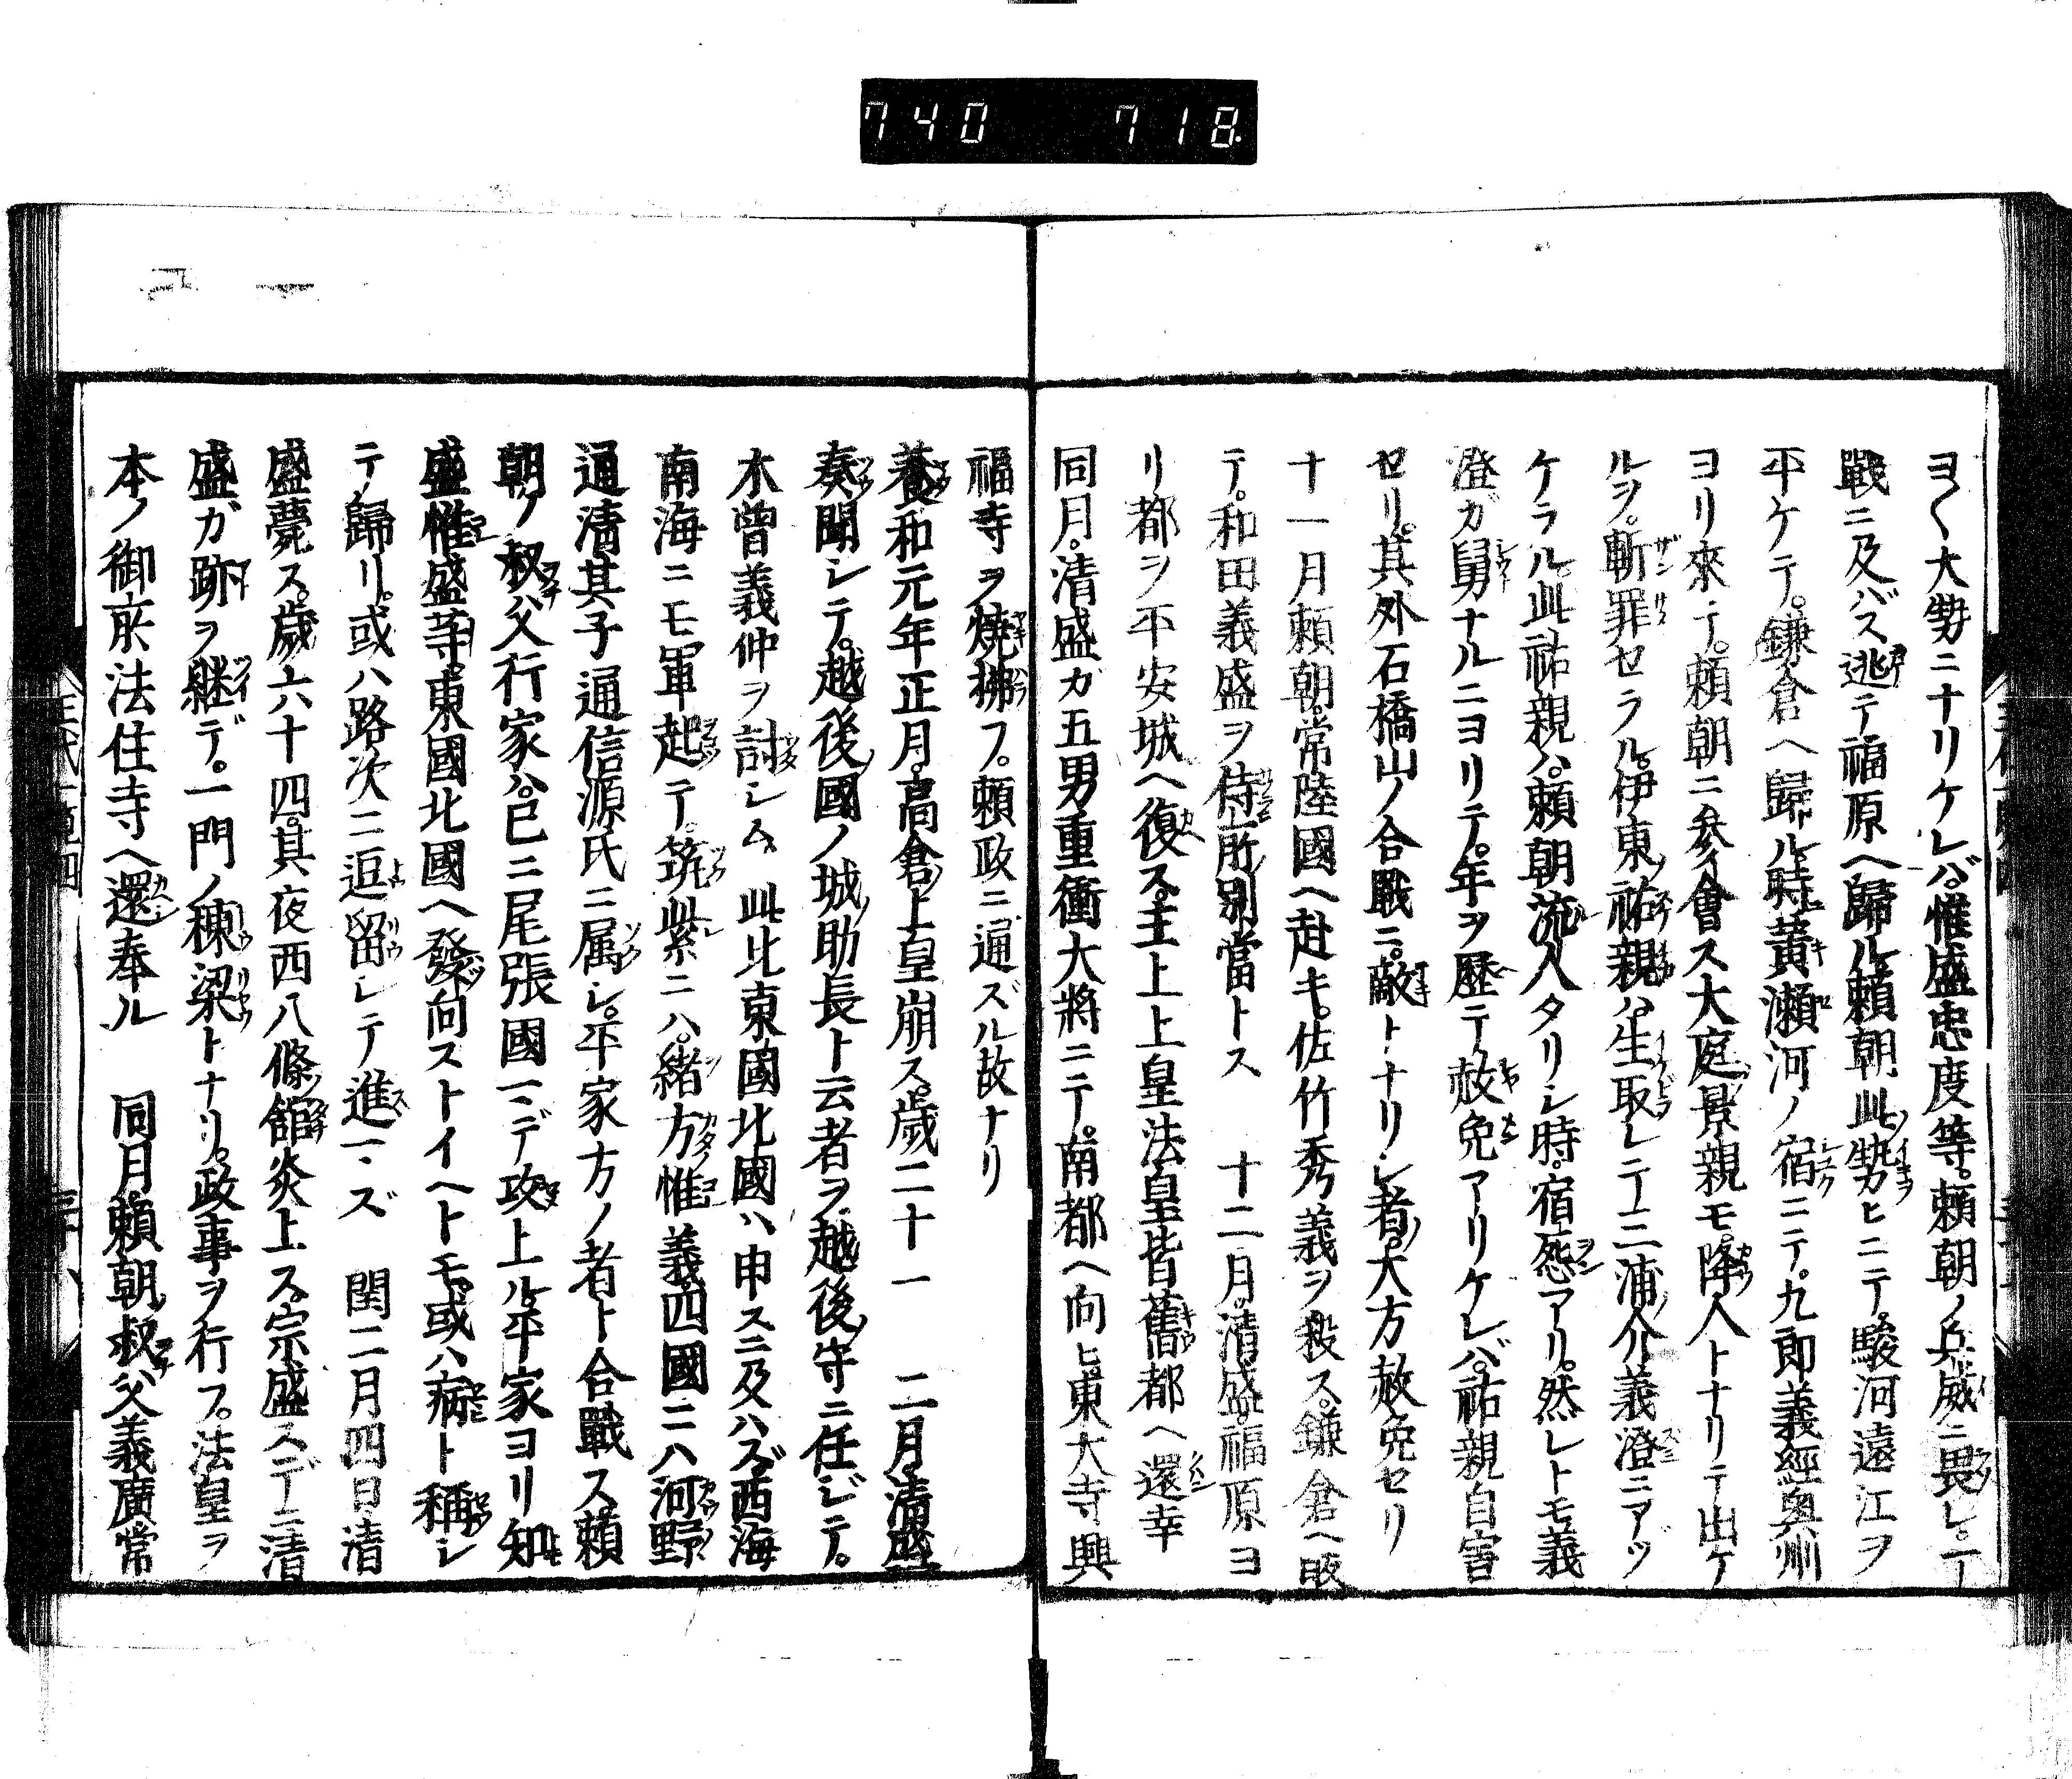 740 718
ヨ〱大勢ニナリケレバ。惟盛忠度等。頼朝ノ兵威ニ畏レ。一
戰ニ及バス逃テ福原ヘ歸ル頼朝此勢ヒニテ。駿河遠江ヲ
平ケテ。鎌倉ヘ歸ル時。黄瀬河ノ宿ニテ。九郎義經奥州
ヨリ來テ。頼朝ニ参イ會ス大庭景親モ。降人トナリテ出ケ
ルヲ。斬罪セラル。伊東祐親ハ。生取レテ三浦介義澄ニアヅ
ケラル。此祐親ハ。頼朝流人タリシ時。宿怨アリ。然レトモ義
澄ガ舅ナルニヨリテ。年ヲ歴テ赦免アリケレバ。祐親自害
セリ。其外石橋山ノ合戰ニ。敵トナリシ者。大方赦免セリ
十一月頼朝。常陸國ヘ赴キ。佐竹秀義ヲ殺ス。鎌倉ヘ皈
テ。和田義盛ヲ侍所別當トス 十二月。清盛。福原ヨ
リ都ヲ平安城ヘ復ス。主上上皇法皇皆舊都ヘ還幸
同月。清盛ガ五男重衝大將ニテ。南都ヘ向ヒ。東大寺興
福寺ヲ燒拂フ。頼政ニ通ズル故ナリ
養和元年正月。高倉上皇崩ス。歳二十一 二月。清盛
奏聞シテ。越後國ノ城助長ト云者ヲ越後守ニ任ジテ。
木曾義仲ヲ討シム 此比東國北國ハ申スニ及ハズ。西海
南海ニモ軍起テ。筑紫ニハ。緒方惟義。四國ニハ河野
通清其子通信源氏ニ属シ。平家方ノ者ト合戰ス頼
朝ノ叔父行家ハ。已ニ尾張國マデ攻上ル。平家ヨリ知
盛惟盛等。東國北國ヘ發向ストイヘトモ。或ハ病ト稱シ
テ歸リ。或ハ路次ニ逗留シテ進マズ 閏二月四日清
盛薨ス。歳六十四。其夜西八條館炎上ス。宗盛スデニ清
盛ガ跡ヲ継デ。一門ノ棟梁トナリ。政事ヲ行フ。法皇ヲ
本ノ御所法住寺ヘ還奉ル 同月。頼朝叔父義廣常